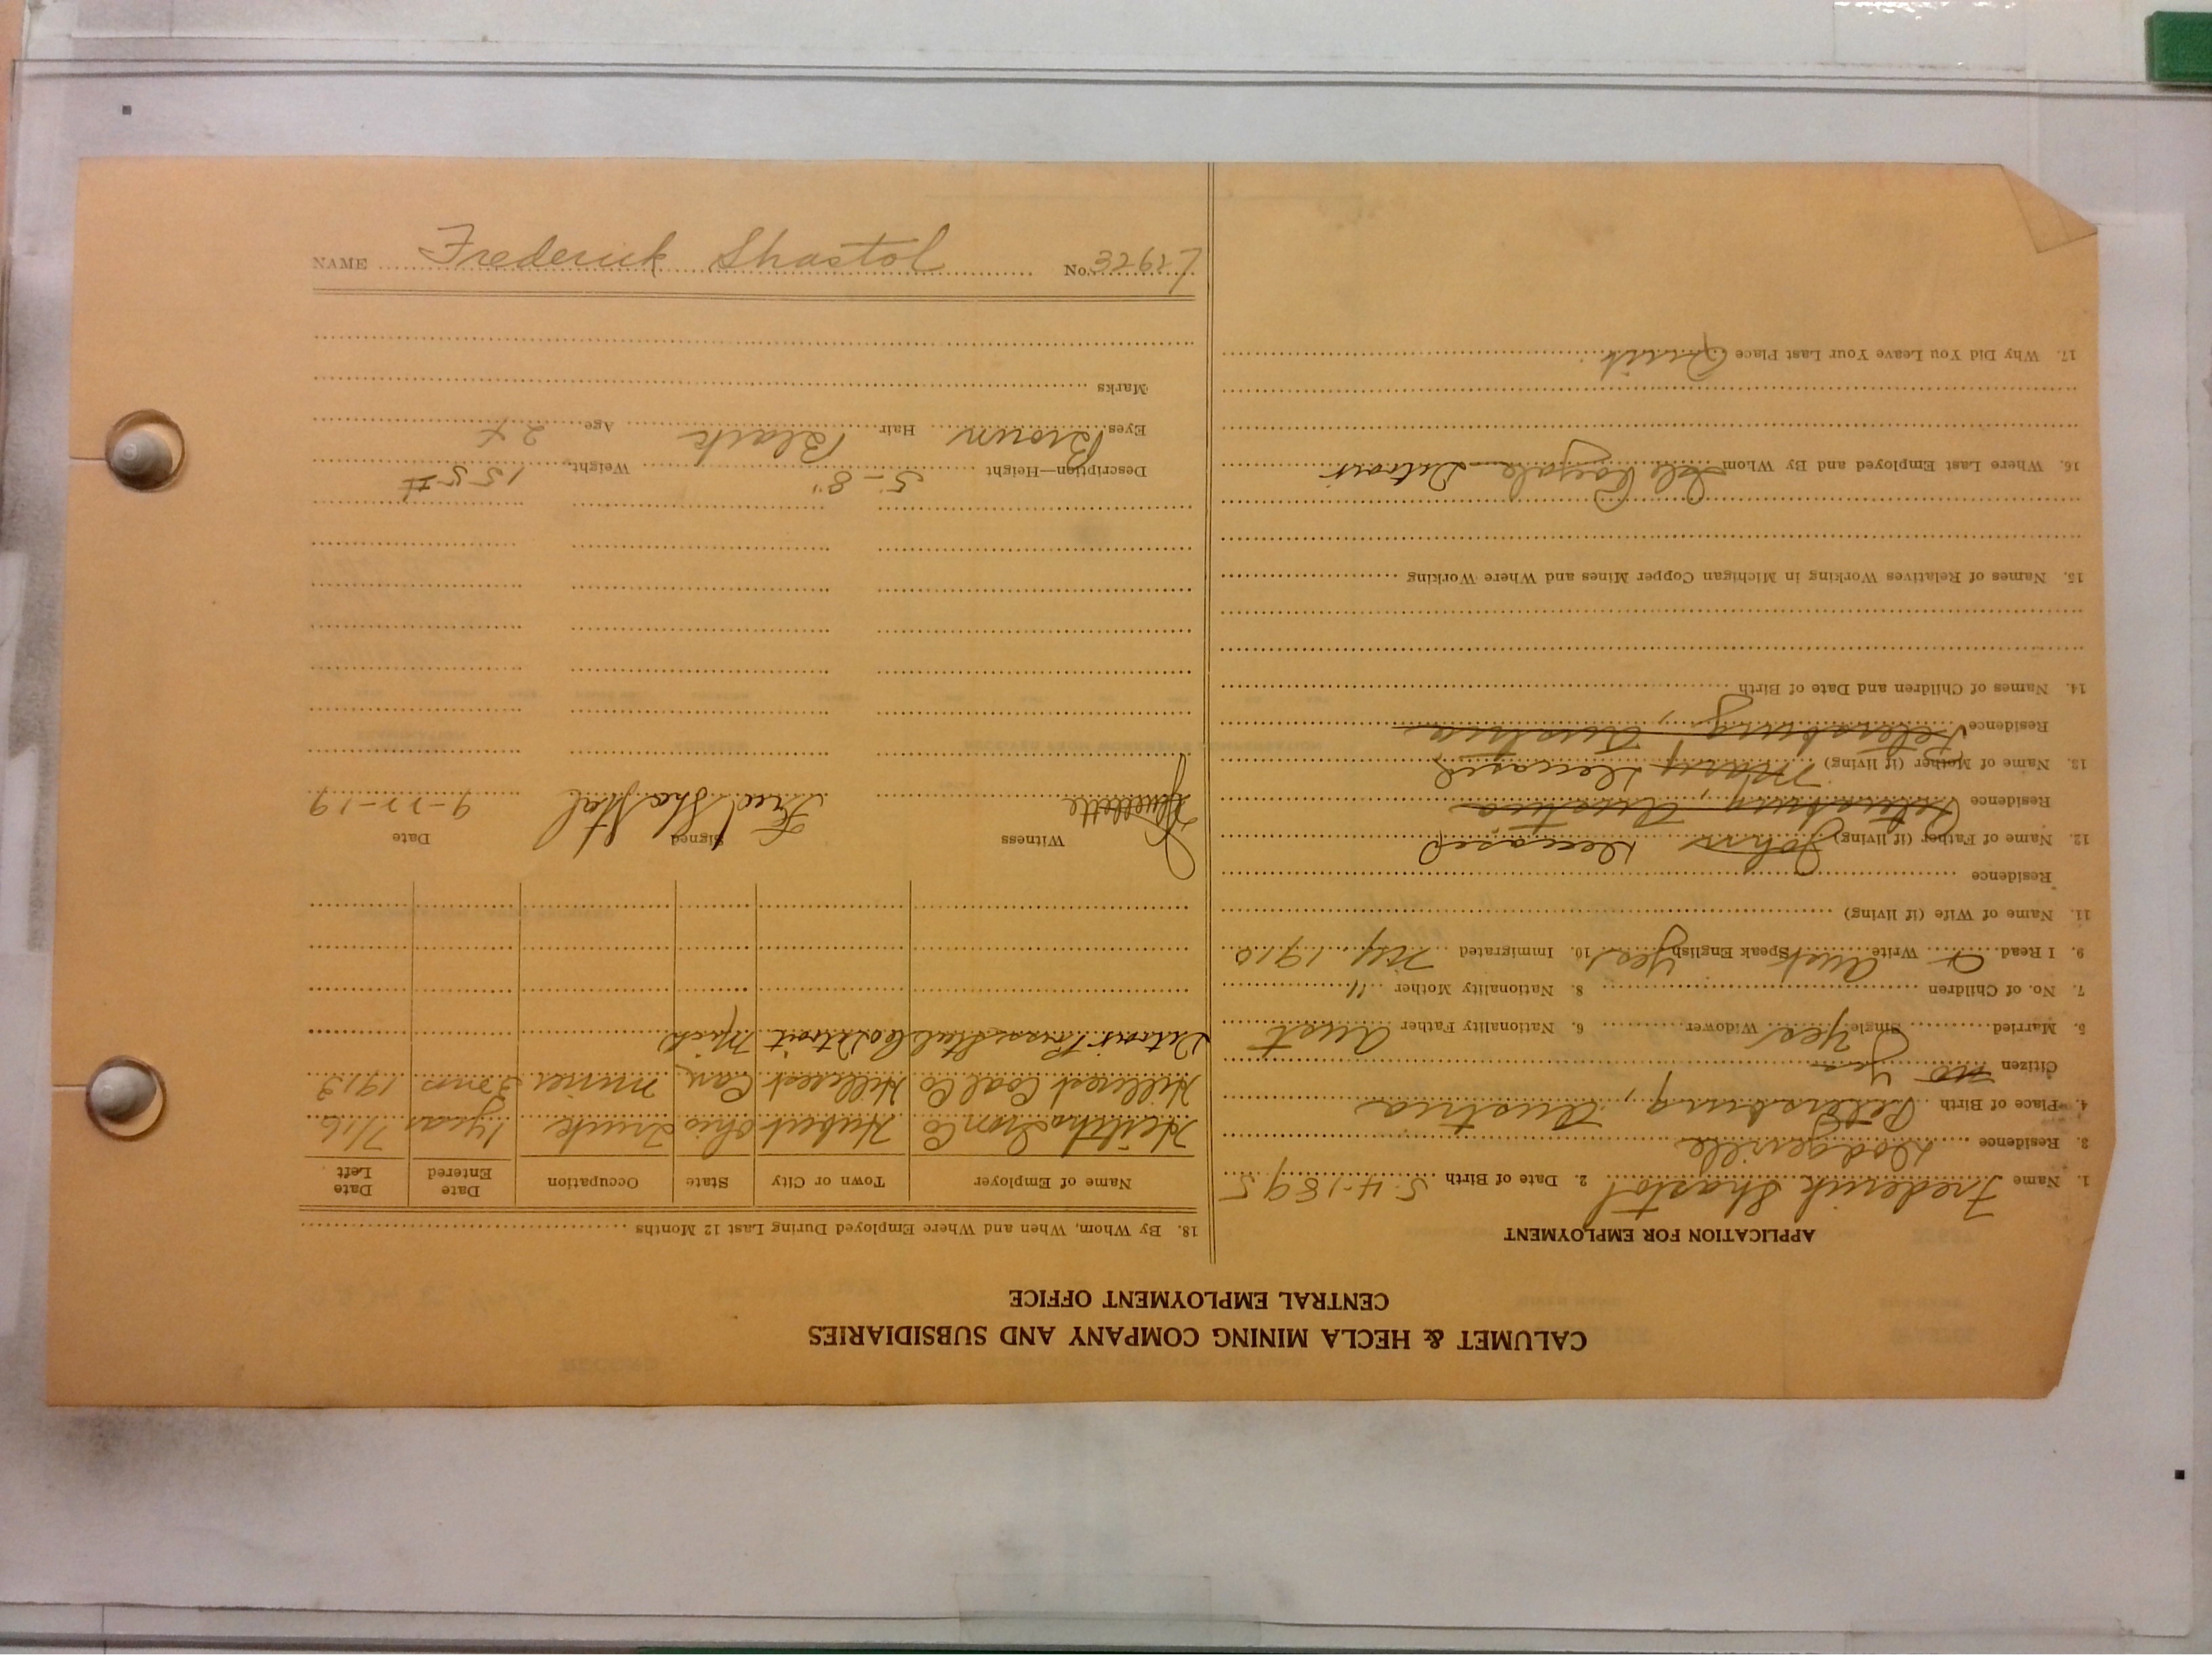 CALUMET & HECLA MINING COMPANY AND SUBSIDIARIES
CENTRAL EMPLOYMENT OFFICE
APPLICATION FOR EMPLOYMENT
1. Name Frederick Shastol 2. Date of Birth 5-4-1895
3. Residence Dodgeville
4. Place of Birth Petersburg, Austria
Citizen no yes
5. Married Single Yes Widower 6. Nationality Father Aust
7. No. of Children 8. Nationality Mother "
9. I Read Write Aust Speak English Yes 10. Immigrated 1910
11. Name of Wife (if living)
Residence
12. Name of Father (if living) John Deceased
Residence Petersburg, Austria
13. Name of Mother (if living) Mary Deceased
Residence Petersburg, Austria
14. Names of Children and Date of Birth
15. Names of Relatives Working in Michigan Copper Mines and Where Working
16. Where Last Employed and By Whom Isle Royale Detroit
17. Why Did You Leave Your Last Place Quit
18. By Whom, When and Where Employed During Last 12 Months
Name of Employer Town or City State Occupation Date Entered Date Left
Iron Co Hubert Ohio Truck 1 year 7/16
Hillcrest Coal Co Hillcrest Can miner 3 mos 1913
Detroit Steel Co Detroit Mich
Witness Signed Date
Fred Shastal 9-22-19
Description—Height 5-8" Weight 155#
Eyes Brown Hair Black Age 24
Marks
NAME Frederick Shastol No. 32627